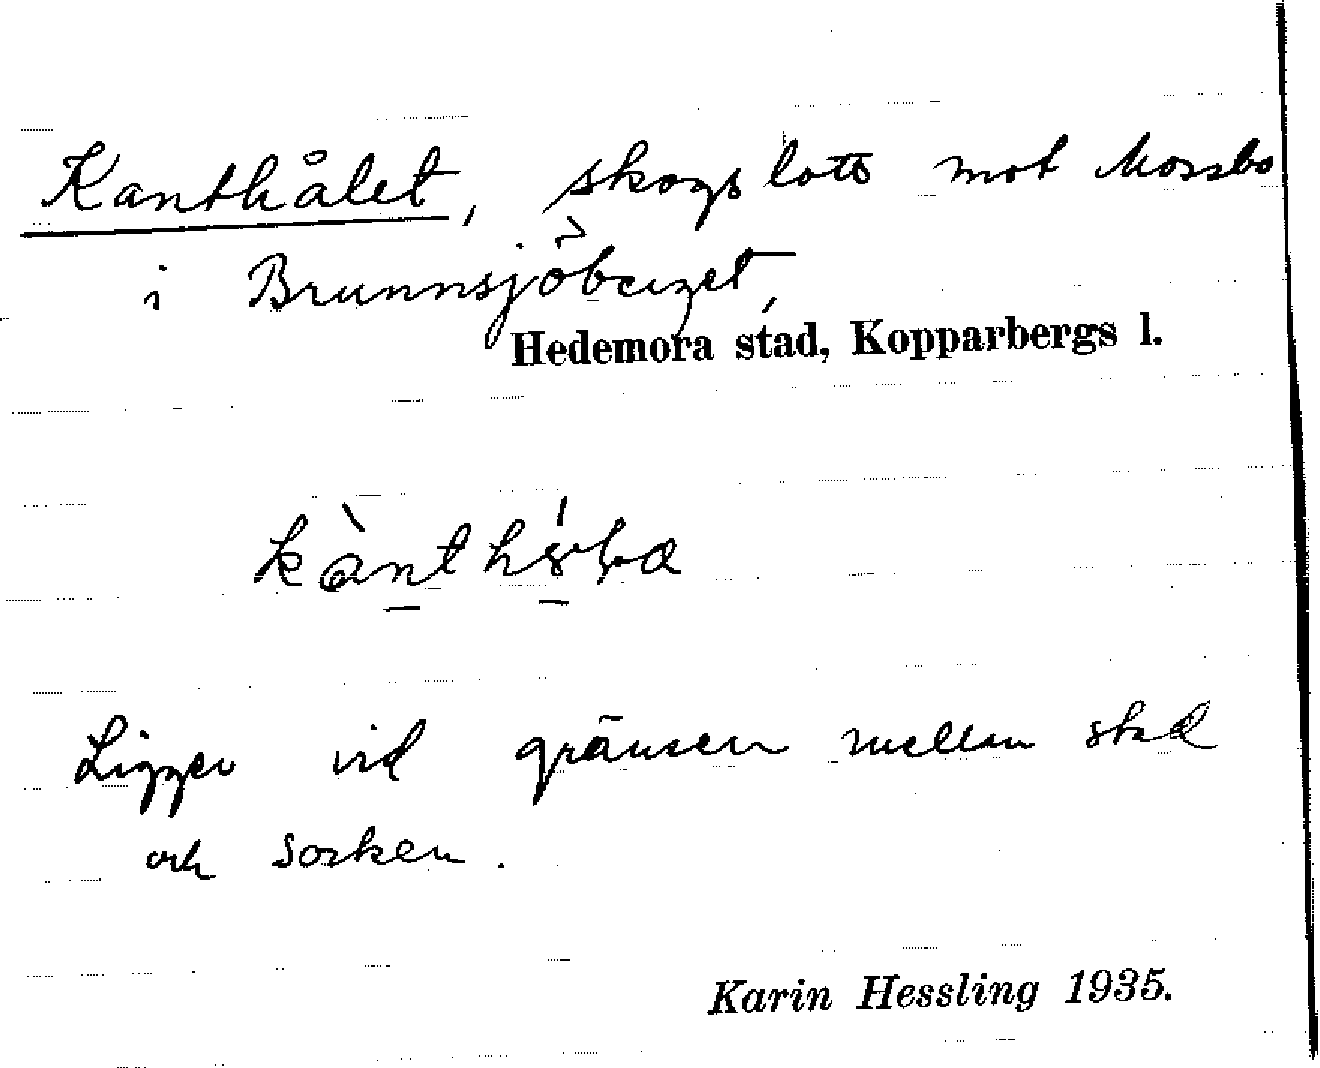 Kanthålet, skogslott mot Mossbo
i Brunnsjöberget,
Hedemora stad, Kopparbergs l.
Ligger vid gränsen mellan stad
och socken.
Karin Hessling 1935.